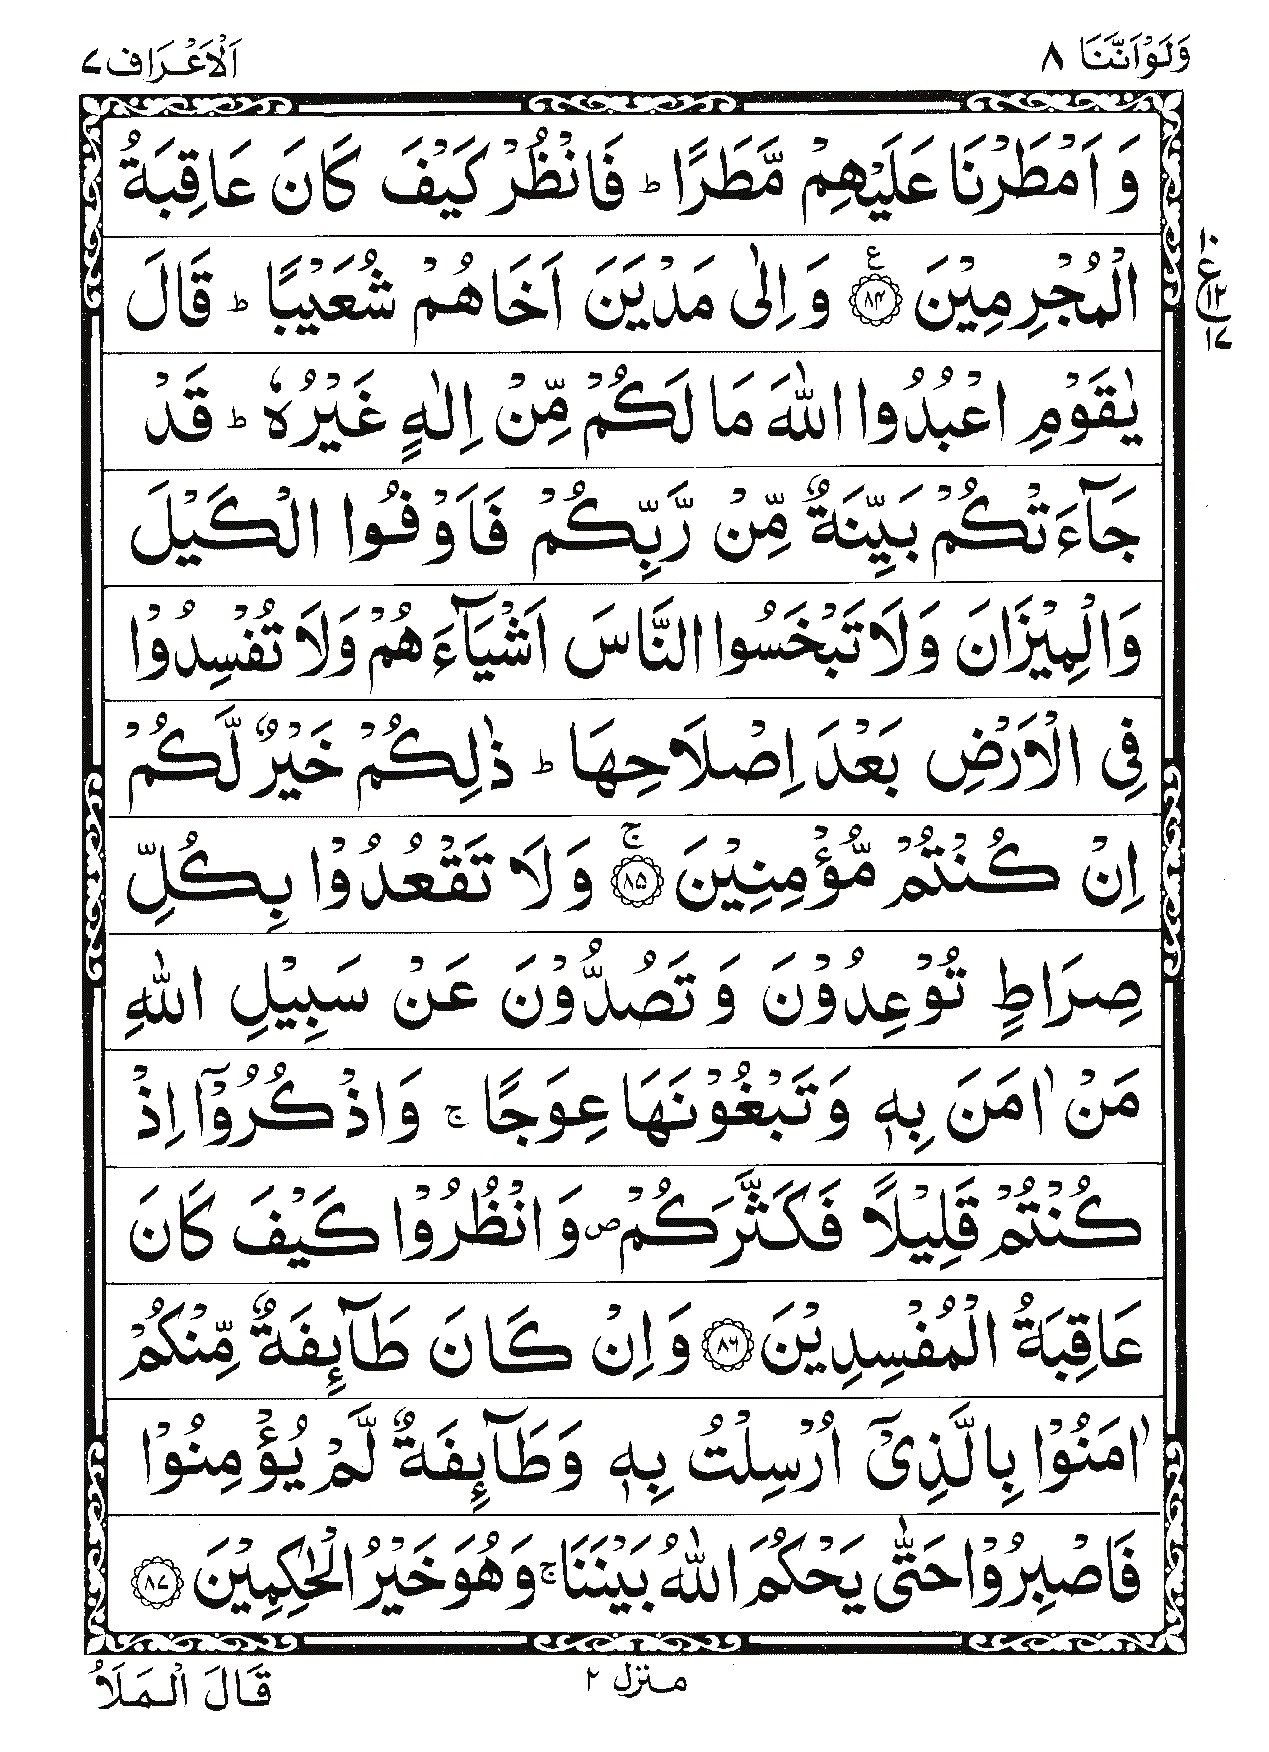 وَلَوْاَنَّنَا ٨
اَلْاَعْرَاف ٧
وَ اَمْطَرْنَا عَلَيْهِمْ مَّطَرًا ؕ فَانْظُرْ كَيْفَ كَانَ عَاقِبَةُ
الْمُجْرِمِيْنَ ﴿٨٤﴾ ع وَ اِلٰى مَدْيَنَ اَخَاهُمْ شُعَيْبًا ؕ قَالَ
١٠
ع
١٢
١٧
يٰقَوْمِ اعْبُدُوا اللّٰهَ مَا لَكُمْ مِّنْ اِلٰهٍ غَيْرُهٗ ؕ قَدْ
جَآءَتْكُمْ بَيِّنَةٌ مِّنْ رَّبِّكُمْ فَاَوْفُوا الْكَيْلَ
وَالْمِيْزَانَ وَلَا تَبْخَسُوا النَّاسَ اَشْيَآءَهُمْ وَلَا تُفْسِدُوْا
فِى الْاَرْضِ بَعْدَ اِصْلَاحِهَا ؕ ذٰلِكُمْ خَيْرٌ لَّكُمْ
اِنْ كُنْتُمْ مُّؤْمِنِيْنَ ﴿٨٥﴾ۚ وَ لَا تَقْعُدُوْا بِكُلِّ
صِرَاطٍ تُوْعِدُوْنَ وَ تَصُدُّوْنَ عَنْ سَبِيْلِ اللّٰهِ
مَنْ اٰمَنَ بِهٖ وَ تَبْغُوْنَهَا عِوَجًا ۚ وَ اذْكُرُوْۤا اِذْ
كُنْتُمْ قَلِيْلًا فَكَثَّرَكُمْ ص وَ انْظُرُوْا كَيْفَ كَانَ
عَاقِبَةُ الْمُفْسِدِيْنَ ﴿٨٦﴾ وَ اِنْ كَانَ طَآئِفَةٌ مِّنْكُمْ
اٰمَنُوْا بِالَّذِىْۤ اُرْسِلْتُ بِهٖ وَ طَآئِفَةٌ لَّمْ يُؤْمِنُوْا
فَاصْبِرُوْا حَتّٰى يَحْكُمَ اللّٰهُ بَيْنَنَا ۚ وَهُوَ خَيْرُ الْحٰكِمِيْنَ ﴿٨٧﴾
منزل ٢
قَالَ الْمَلَاُ